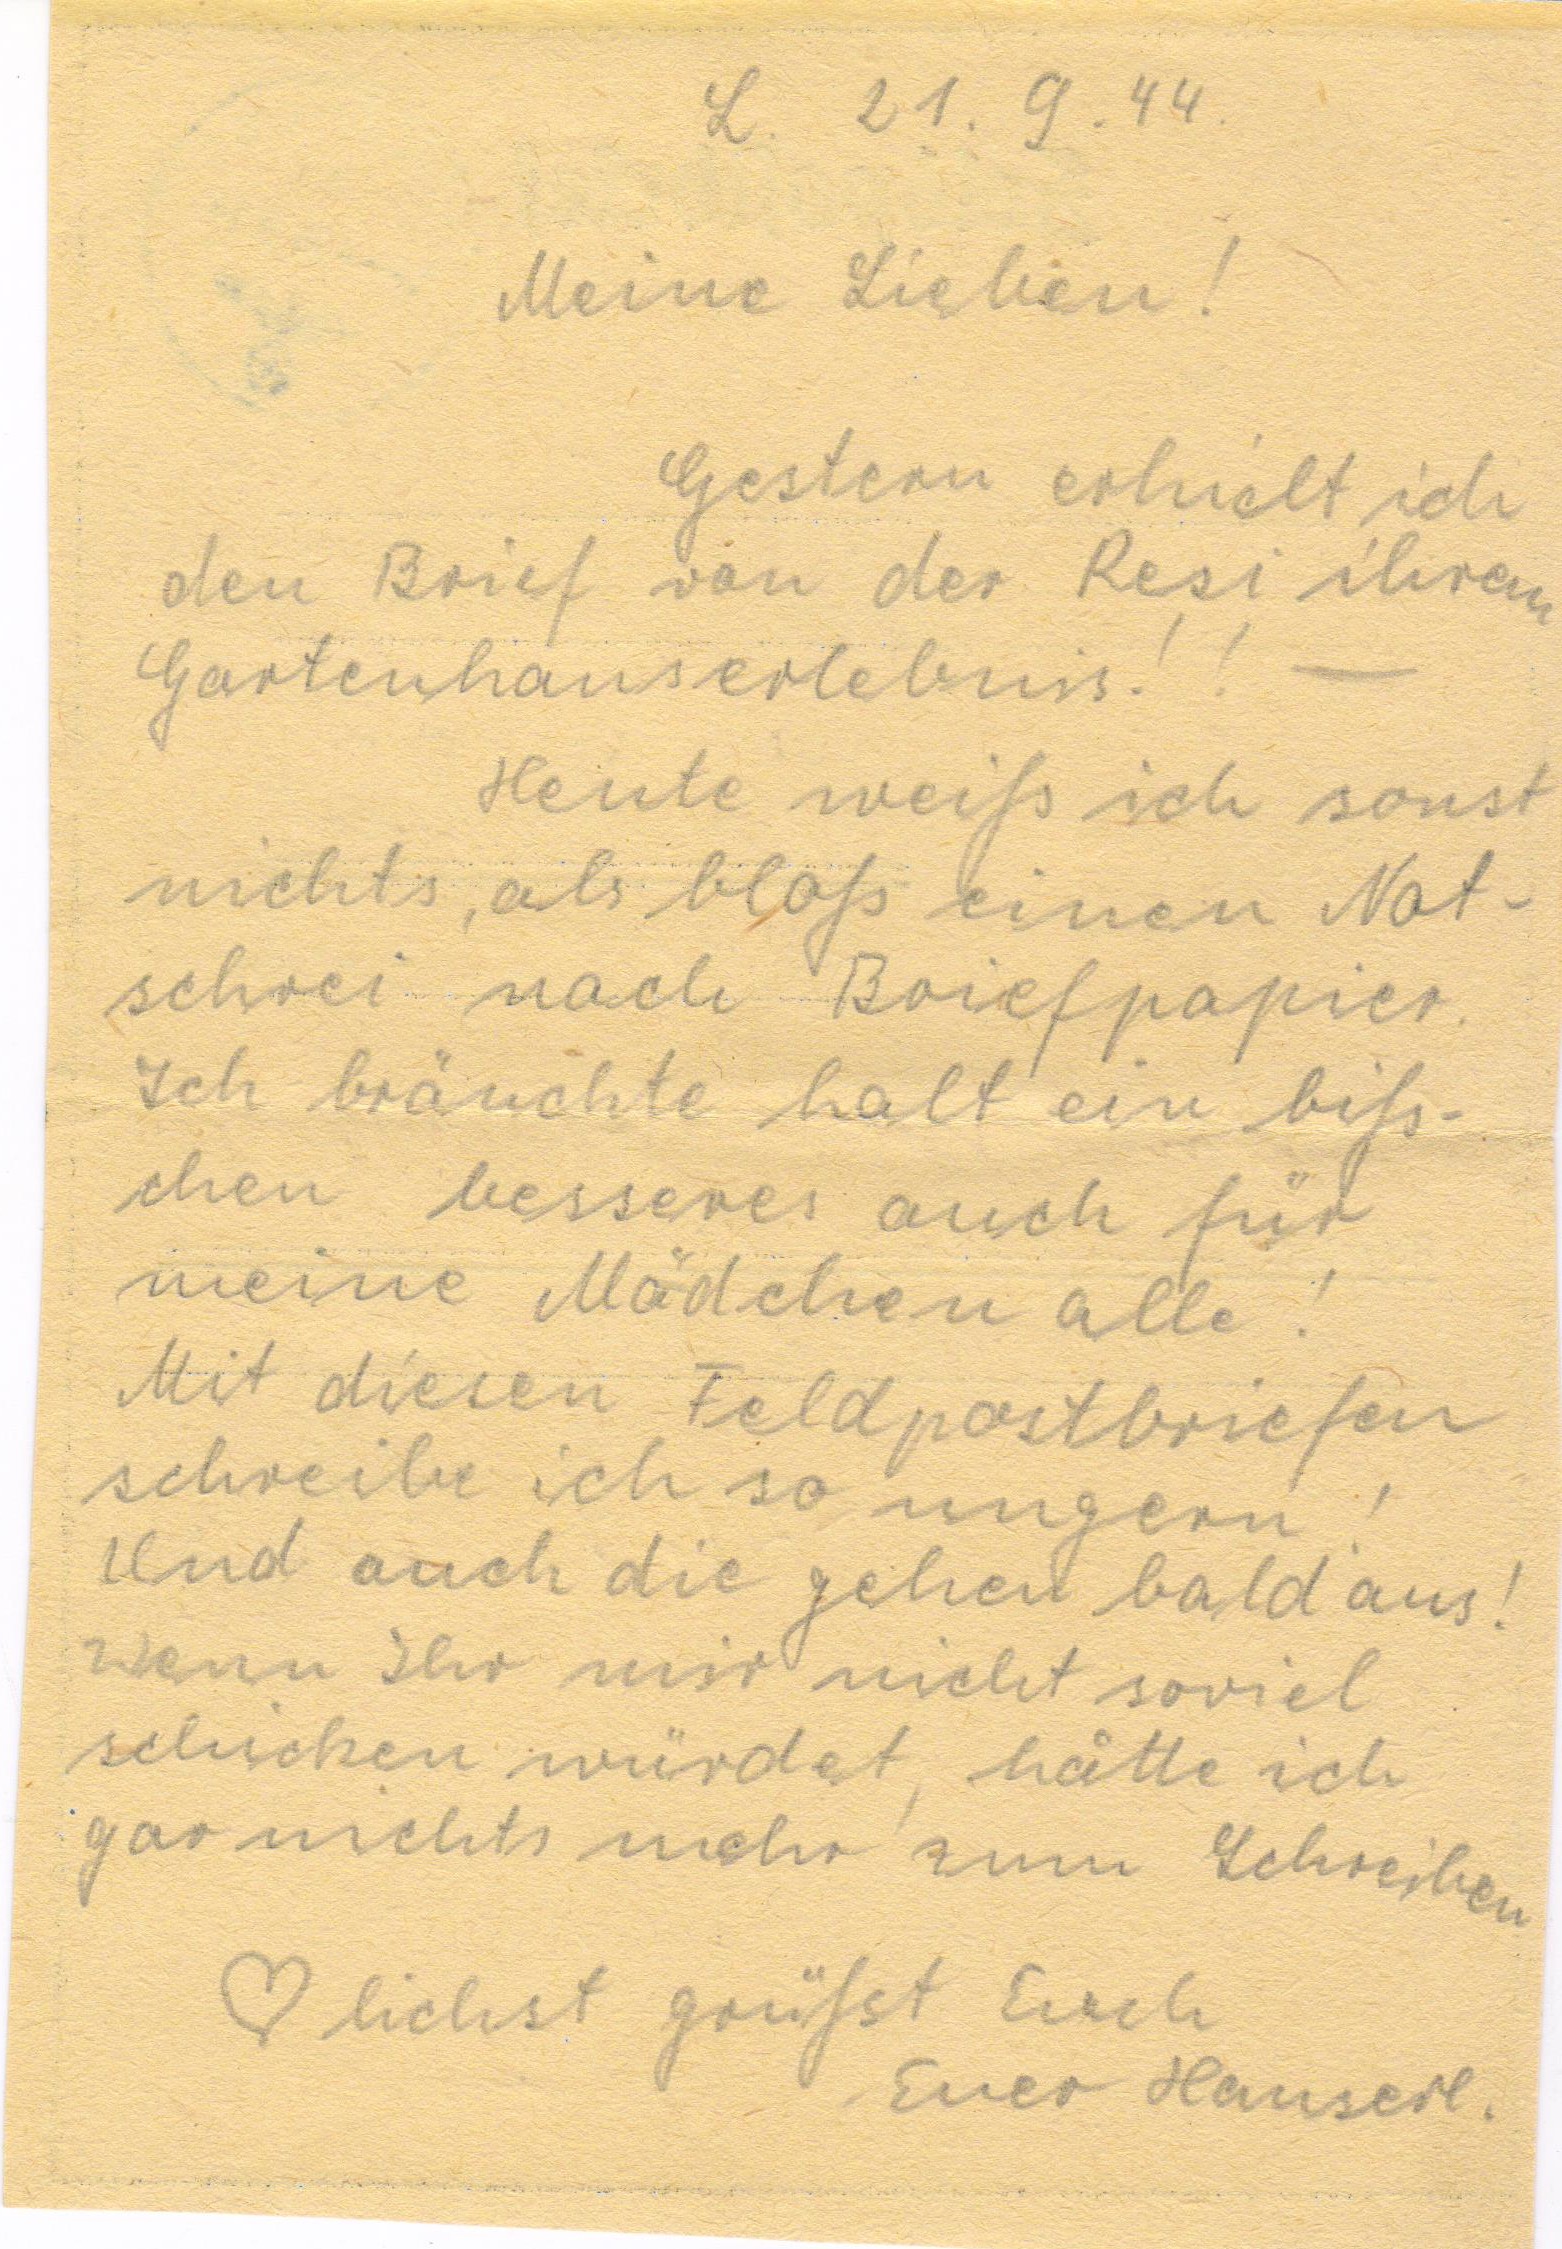 L. 21. 9. 44.
Meine Lieben!
Gestern erhielt ich
den Brief von der Resi ihrem
Gartenhauserlebnis!! —
Heute weiß ich sonst
nichts, als bloß einen Not-
schrei nach Briefpapier.
Ich bräuchte halt ein biß-
chen besseres auch für
meine Mädchen alle!
Mit diesen Feldpostbriefen
schreibe ich so ungern!
Und auch die gehen bald aus!
Wenn Ihr mir nicht soviel
schicken würdet, hätte ich
gar nichts mehr zum Schreiben
♡lichst grüßt Euch
Euer Hanserl.